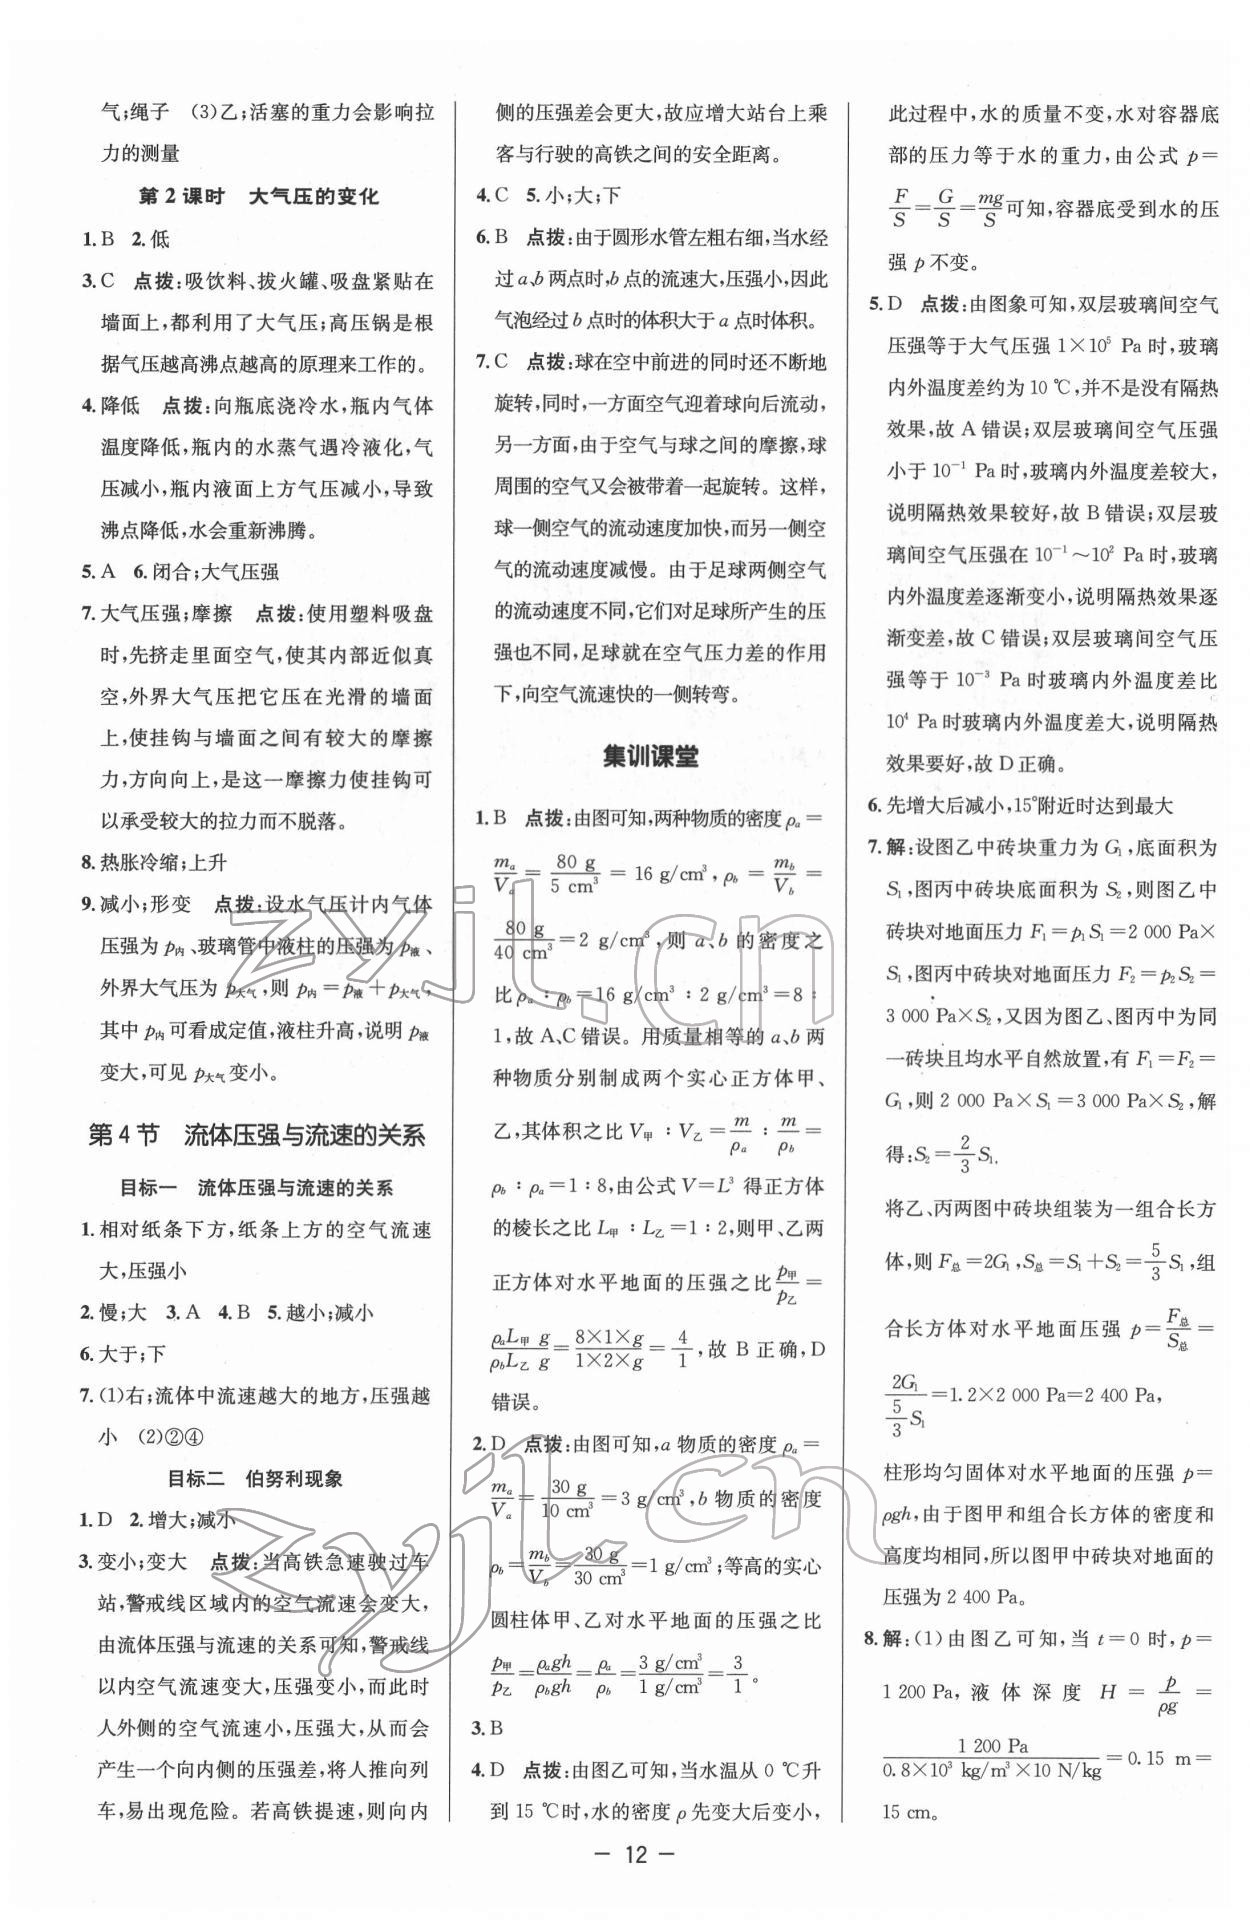 气;绳子　(3)乙;活塞的重力会影响拉
力的测量
第2课时　大气压的变化
1.B　2.低
3.C　点拨:吸饮料、拔火罐、吸盘紧贴在
墙面上,都利用了大气压;高压锅是根
据气压越高沸点越高的原理来工作的。
4.降低　点拨:向瓶底浇冷水,瓶内气体
温度降低,瓶内的水蒸气遇冷液化,气
压减小,瓶内液面上方气压减小,导致
沸点降低,水会重新沸腾。
5.A　6.闭合;大气压强
7.大气压强;摩擦　点拨:使用塑料吸盘
时,先挤走里面空气,使其内部近似真
空,外界大气压把它压在光滑的墙面
上,使挂钩与墙面之间有较大的摩擦
力,方向向上,是这一摩擦力使挂钩可
以承受较大的拉力而不脱落。
8.热胀冷缩;上升
9.减小;形变　点拨:设水气压计内气体
压强为 p内、玻璃管中液柱的压强为 p液、
外界大气压为 p大气,则 p内=p液+p大气,
其中 p内可看成定值,液柱升高,说明 p液
变大,可见 p大气变小。
第4节　流体压强与流速的关系
目标一　流体压强与流速的关系
1.相对纸条下方,纸条上方的空气流速
大,压强小
2.慢;大　3.A　4.B　5.越小;减小
6.大于;下
7.(1)右;流体中流速越大的地方,压强越
小　(2)②④
目标二　伯努利现象
1.D　2.增大;减小
3.变小;变大　点拨:当高铁急速驶过车
站,警戒线区域内的空气流速会变大,
由流体压强与流速的关系可知,警戒线
以内空气流速变大,压强变小,而此时
人外侧的空气流速小,压强大,从而会
产生一个向内侧的压强差,将人推向列
车,易出现危险。若高铁提速,则向内
侧的压强差会更大,故应增大站台上乘
客与行驶的高铁之间的安全距离。
4.C　5.小;大;下
6.B　点拨:由于圆形水管左粗右细,当水经
过 a、b 两点时,b 点的流速大,压强小,因此
气泡经过 b 点时的体积大于 a 点时体积。
7.C　点拨:球在空中前进的同时还不断地
旋转,同时,一方面空气迎着球向后流动,
另一方面,由于空气与球之间的摩擦,球
周围的空气又会被带着一起旋转。这样,
球一侧空气的流动速度加快,而另一侧空
气的流动速度减慢。由于足球两侧空气
的流动速度不同,它们对足球所产生的压
强也不同,足球就在空气压力差的作用
下,向空气流速快的一侧转弯。
集训课堂
1.B　点拨:由图可知,两种物质的密度 ρa=
ma/Va=80 g/5 cm³=16 g/cm³,ρb=mb/Vb=
80 g/40 cm³=2 g/cm³,则 a、b 的密度之
比 ρa∶ρb=16 g/cm³∶2 g/cm³=8∶
1,故 A、C 错误。用质量相等的 a、b 两
种物质分别制成两个实心正方体甲、
乙,其体积之比 V甲∶V乙=m/ρa∶m/ρb=
ρb∶ρa=1∶8,由公式 V=L³ 得正方体
的棱长之比 L甲∶L乙=1∶2,则甲、乙两
正方体对水平地面的压强之比 p甲/p乙=
ρaL甲 g/ρbL乙 g=8×1×g/1×2×g=4/1,故 B 正确,D
错误。
2.D　点拨:由图可知,a 物质的密度 ρa=
ma/Va=30 g/10 cm³=3 g/cm³,b 物质的密度
ρb=mb/Vb=30 g/30 cm³=1 g/cm³;等高的实心
圆柱体甲、乙对水平地面的压强之比
p甲/p乙=ρagh/ρbgh=ρa/ρb=3 g/cm³/1 g/cm³=3/1。
3.B
4.D　点拨:由图乙可知,当水温从0 ℃升
到 15 ℃时,水的密度 ρ 先变大后变小,
此过程中,水的质量不变,水对容器底
部的压力等于水的重力,由公式 p=
F/S=G/S=mg/S可知,容器底受到水的压
强 p 不变。
5.D　点拨:由图象可知,双层玻璃间空气
压强等于大气压强 1×10⁵ Pa 时,玻璃
内外温度差约为 10 ℃,并不是没有隔热
效果,故 A 错误;双层玻璃间空气压强
小于 10⁻¹ Pa 时,玻璃内外温度差较大,
说明隔热效果较好,故 B 错误;双层玻
璃间空气压强在 10⁻¹～10² Pa 时,玻璃
内外温度差逐渐变小,说明隔热效果逐
渐变差,故 C 错误;双层玻璃间空气压
强等于 10⁻³ Pa 时玻璃内外温度差比
10⁴ Pa 时玻璃内外温度差大,说明隔热
效果要好,故 D 正确。
6.先增大后减小,15°附近时达到最大
7.解:设图乙中砖块重力为 G₁,底面积为
S₁,图丙中砖块底面积为 S₂,则图乙中
砖块对地面压力 F₁=p₁S₁=2 000 Pa×
S₁,图丙中砖块对地面压力 F₂=p₂S₂=
3 000 Pa×S₂,又因为图乙、图丙中为同
一砖块且均水平自然放置,有 F₁=F₂=
G₁,则 2 000 Pa×S₁=3 000 Pa×S₂,解
得:S₂=2/3 S₁.
将乙、丙两图中砖块组装为一组合长方
体,则 F总=2G₁,S总=S₁+S₂=5/3 S₁,组
合长方体对水平地面压强 p=F总/S总=
2G₁/(5/3 S₁)=1.2×2 000 Pa=2 400 Pa,
柱形均匀固体对水平地面的压强 p=
ρgh,由于图甲和组合长方体的密度和
高度均相同,所以图甲中砖块对地面的
压强为 2 400 Pa。
8.解:(1)由图乙可知,当 t=0 时,p=
1 200 Pa,液体深度 H=p/ρg=
1 200 Pa/0.8×10³ kg/m³×10 N/kg=0.15 m=
15 cm。
— 12 —
zyjl.cn
zyjl.cn